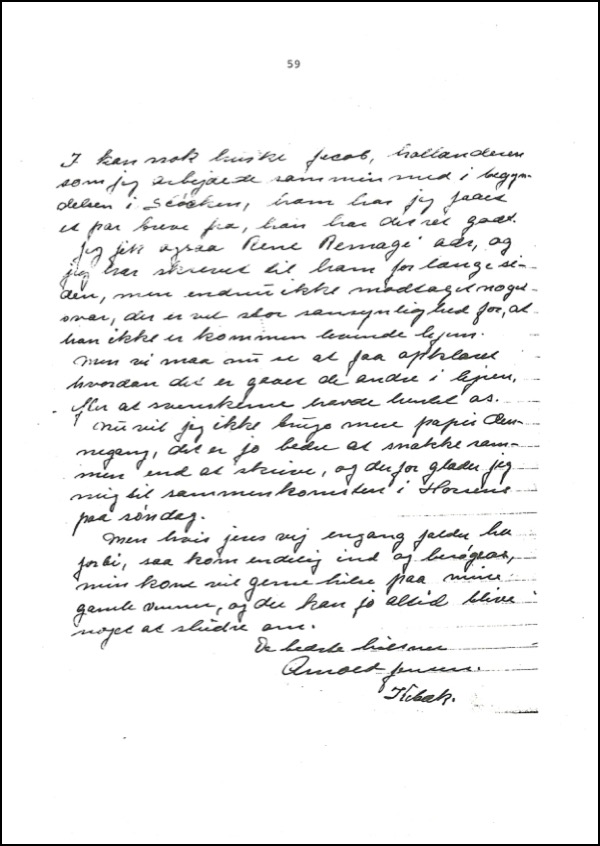 59
I kan nok huske Jecob, hollanderen
som jeg arbejdede sammen med i begyn-
delsen i Stöcken, ham har jeg faaet
et par breve fra, han har det ret godt.
Jeg fik ogsaa René Remagi adr, og
jeg har skrevet til ham for længe si-
den, men endnu ikke modtaget noget
svar, der er vel stor sansynlighed for, at
han ikke er kommen levende hjem.
Men vi maa nu se at faa opklaret
hvordan det er gaaet de andre i lejren,
efter at svenskerne havde hentet os.
Nu vil jeg ikke bruge mere papir den-
negang, det er jo bedre at snakke sam-
men end at skrive, og derfor glæder jeg
mig til sammenkomsten i Horsens
paa søndag.
Men hvis jeres vej engang falder her
forbi, saa kom endelig ind og besøg os,
min kone vil gerne hilse paa mine
gamle venner, og der kan jo altid blive
noget at sludre om.
De bedste hilsner
Arnold Jensen.